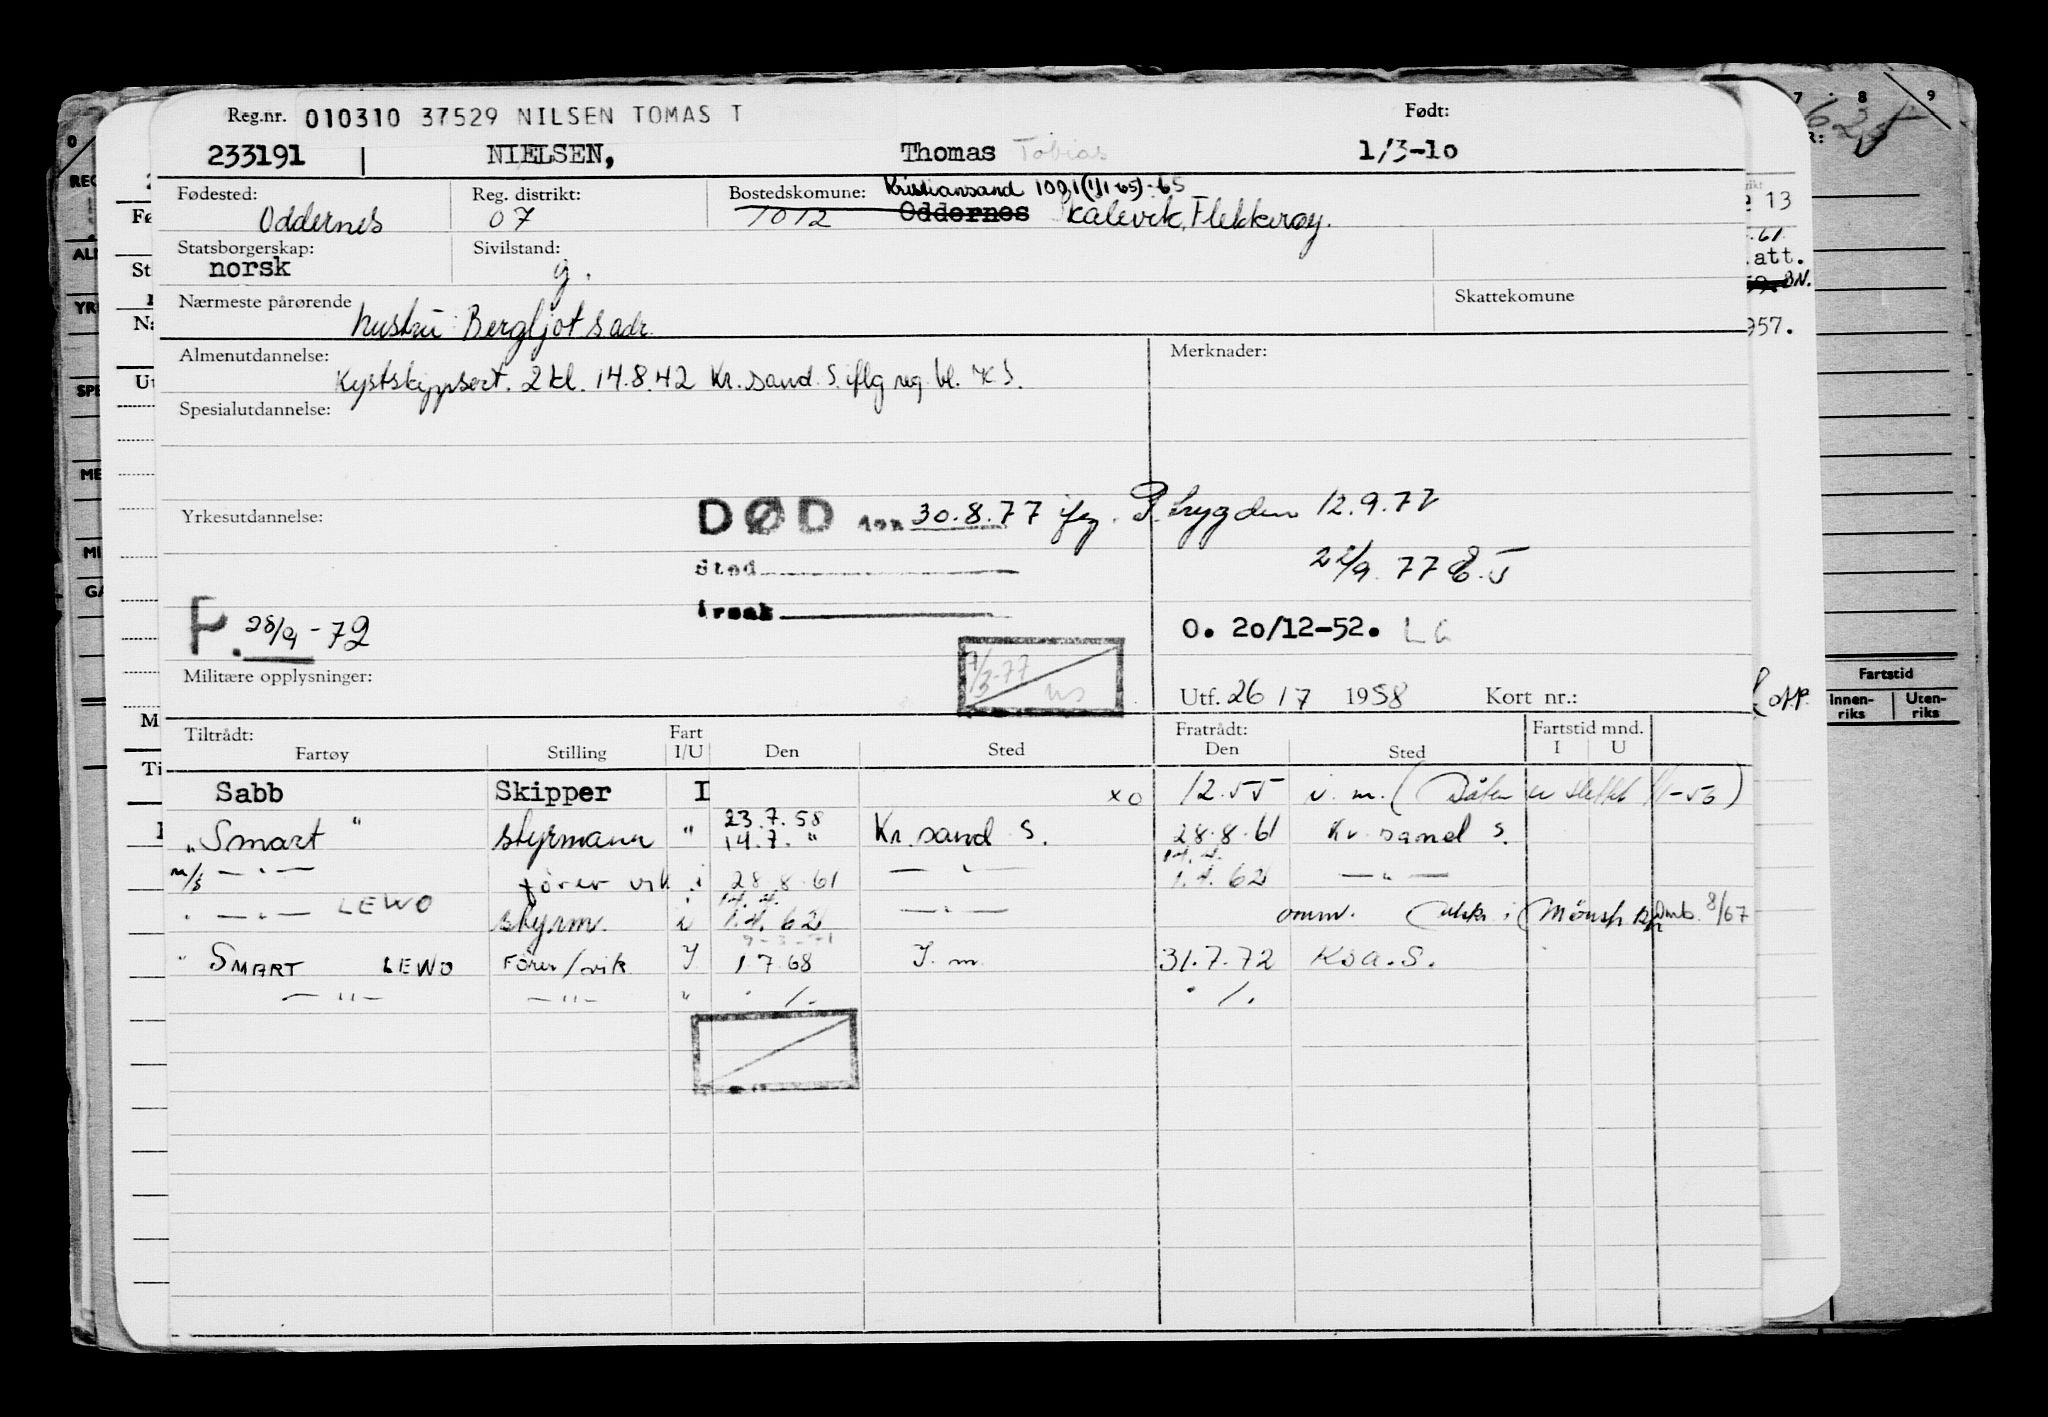 Reg.nr. 010310 37529 NILSEN TOMAS T Født:
233191 NIELSEN, Thomas Tobias 1/3-10
Fødested: Reg. distrikt: Bostedskomune: Kristiansand 1001 (1/1-65)-65
Oddernes 07 1012 Oddernes Skalevik, Flekkerøy.
Statsborgerskap: Sivilstand:
norsk g.
Nærmeste pårørende Skattekomune
hustru: Bergljot s adr.
Almenutdannelse: Merknader:
Kystskippsert. 2 kl. 14.8.42 Kr.sand. S. iflg reg. bl. K.S.
Spesialutdannelse:
Yrkesutdannelse: DØD den 30.8.77 ifg. P. trygden 12.9.77
Sted 22/9.77 E.J
P. 28/9-72 årsak O. 20/12-52. LG
7/3-77
Militære opplysninger: Utf. 26/7 1958 Kort nr.:
Tiltrådt: Fart Fratrådt: Fartstid mnd.
Fartøy Stilling I/U Den Sted Den Sted I U
Sabb Skipper I xo 12.55 i. m. (Båten er slettet 11-56)
23.7.58
"Smart" styrmann " 14.7. " Kr.sand S. 28.8.61 Kr.sand S.
14.4.
m/s — " — fører vik i 28.8.61 — " — 1.4.62 — " —
14.4.
" — " — LEWO styrm. i 1.4.62 — " — omm. 8/67
" SMART LEWO Fører/vik I 1.7.68 I. m. 31.7.72 Krs.a.S.
— " — — " — " ./. ./.
7 8 9
13
.61
.att.
BN.
957.
Fartstid
Innen-
riks
Uten-
riks